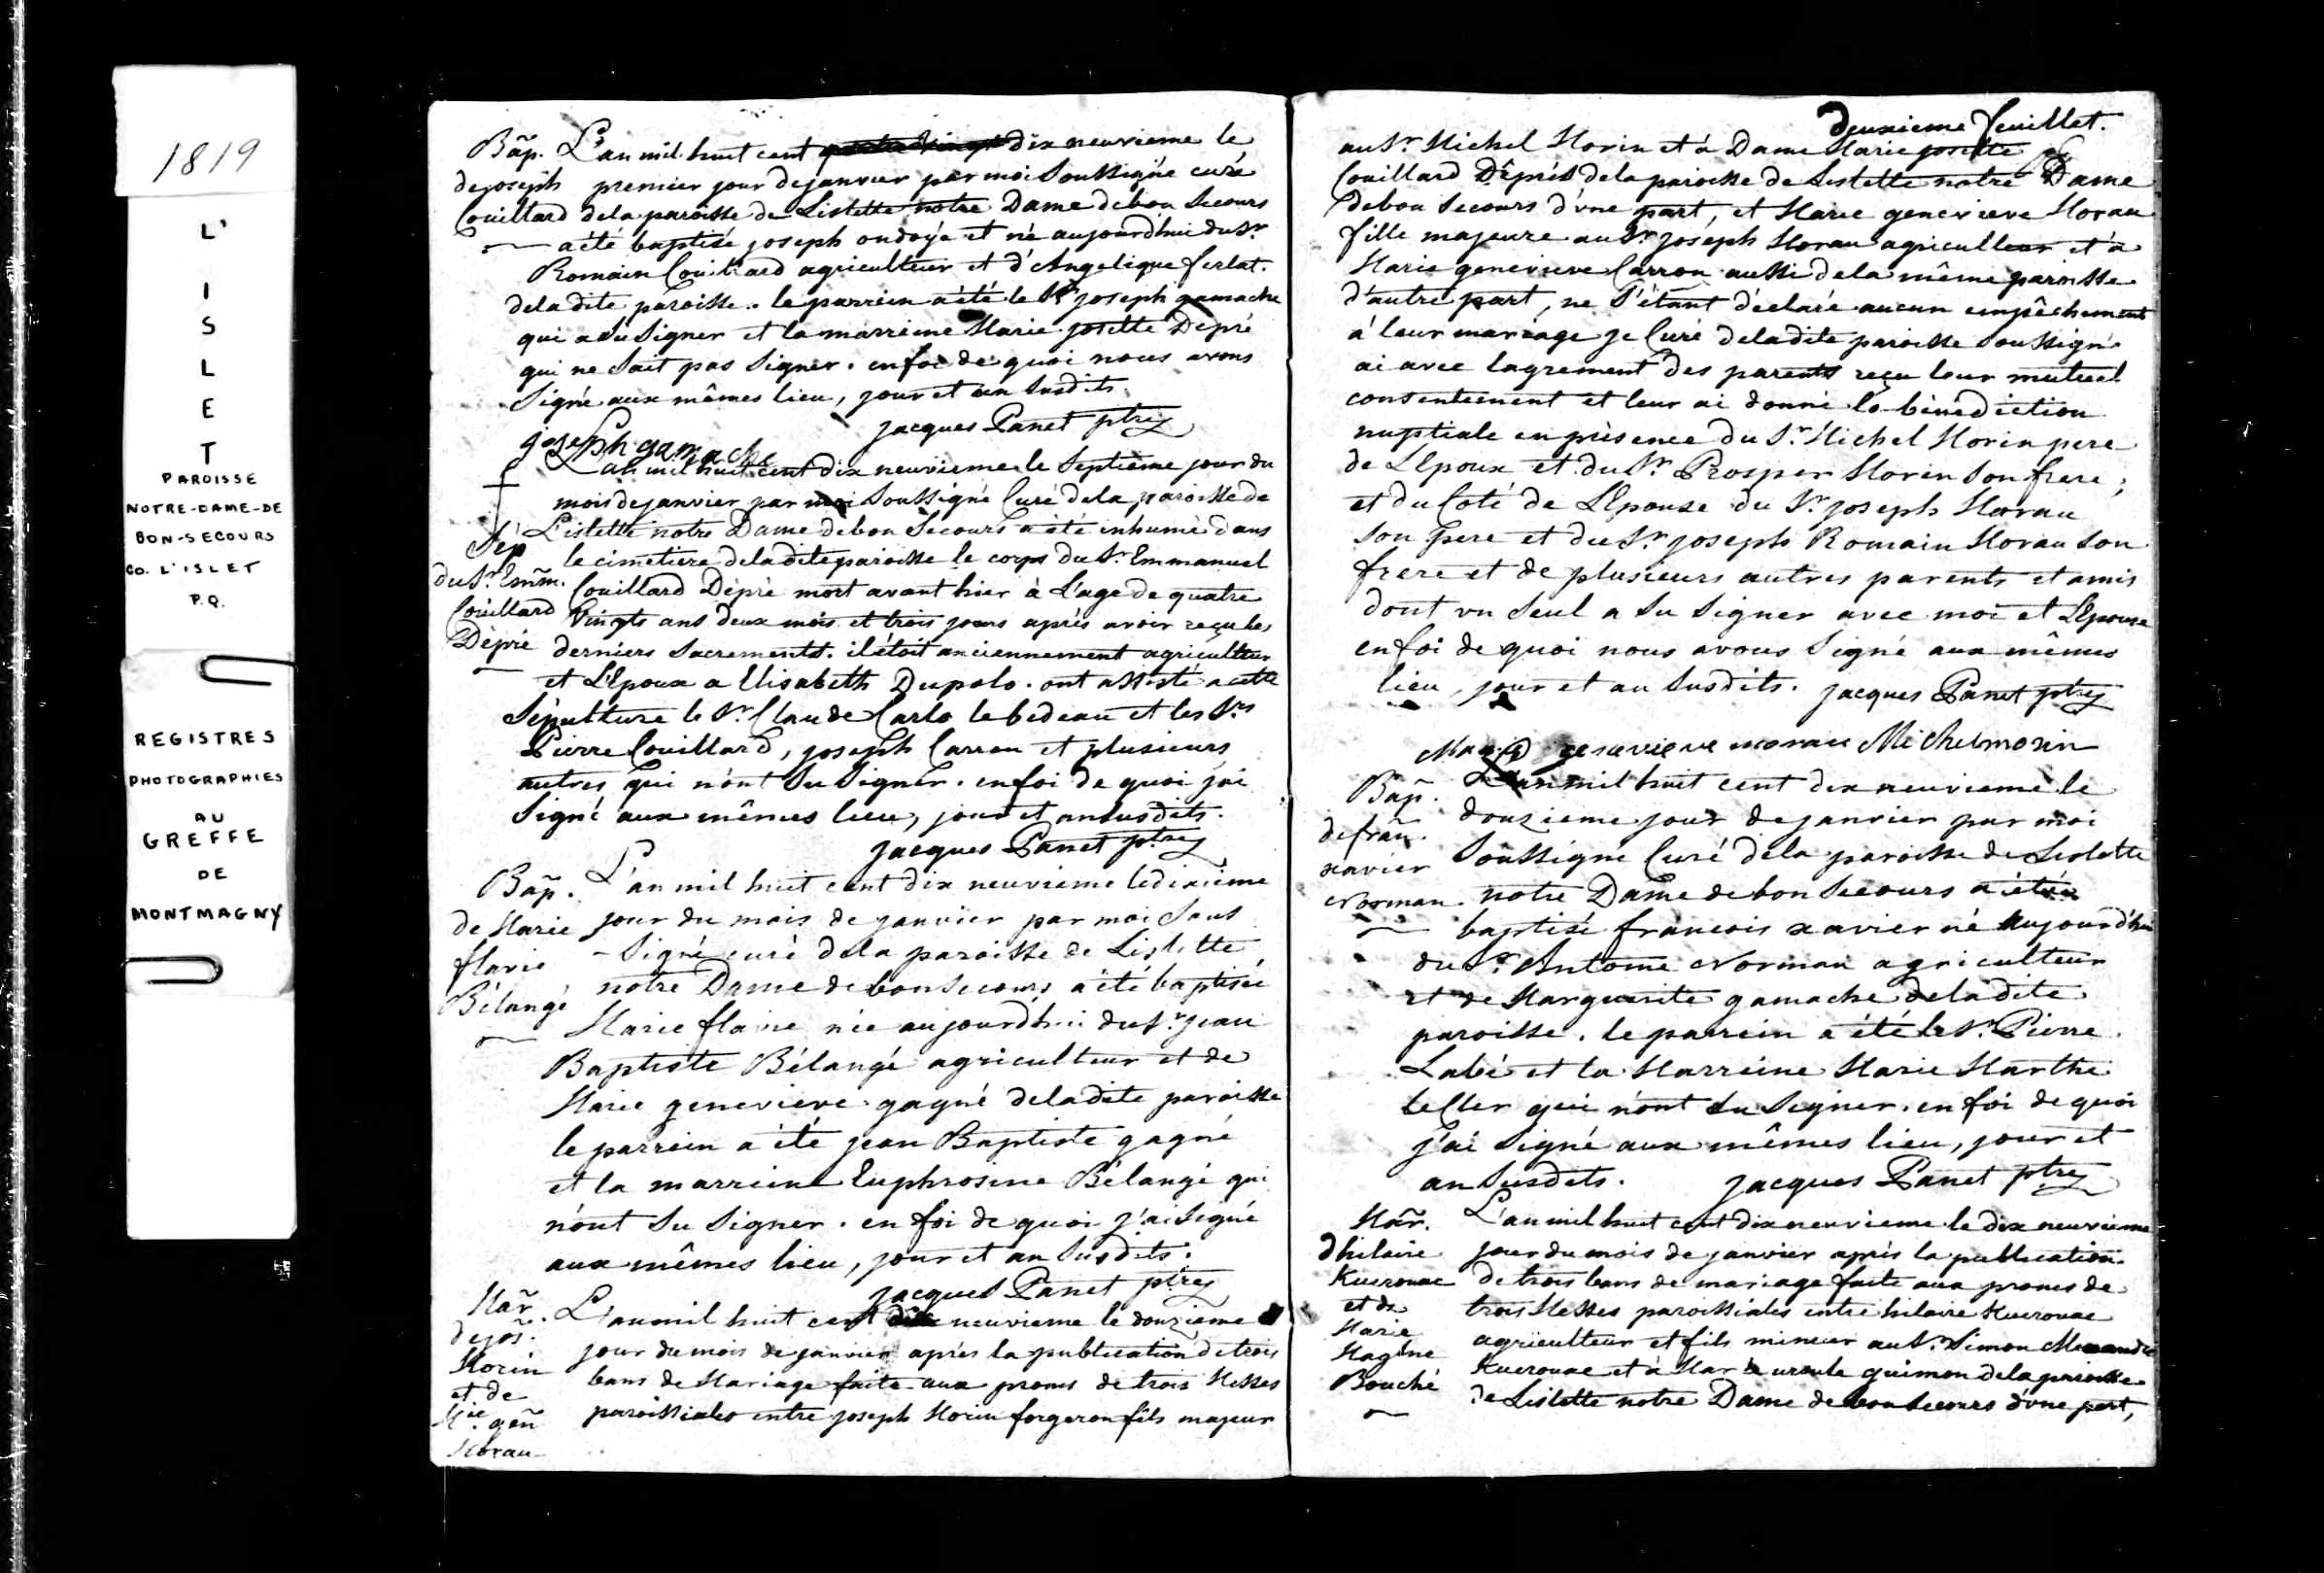 1819
L'
I
S
L
E
T
PAROISSE
NOTRE-DAME-DE
BON-SECOURS
CO. L'ISLET
P.Q.
REGISTRES
PHOTOGRAPHIES
AU
GREFFE
DE
MONTMAGNY
Bap̃. L'an mil huit cent quatre vingt dix neuvieme le
de joseph premier jour de janvier par moi Soussigné curé
Couillard de la paroisse de Lislette notre Dame de bon Secours
a été baptisé joseph ondoyé et né aujourdhui du Sr.
Romain Couillard agriculteur et d'Angelique ferlat.
de la dite paroisse. le parrein a été le Sr. joseph gamache
qui a Su Signer et la marreine Marie josette Dépré
qui ne Sait pas Signer. en foi de quoi nous avons
Signé aux mêmes lieu, jour et an Susdits.
jacques Panet ptre
joseph gamache
L'an mil huit cent dix neuvieme le Septieme jour du
mois de janvier par moi Soussigné Curé de la paroisse de
Lislette notre Dame de bon Secours a été inhumé dans
Sep le cimetiere de la dite paroisse le corps du Sr. Emmanuel
du Sr. Em̃m. Couillard Dépré mort avant hier à L'age de quatre
Couillard Vingts ans deux mois et trois jours aprés avoir reçu les
Dépré derniers Sacrements. il étoit anciennement agriculteur
et L'Epoux a Elisabeth Dupolo. ont assisté a cette
Sépulture le Sr. Claude Carlo le bedeau et les Srs
Pierre Couillard, joseph Carron et plusieurs
autres qui n'ont Su Signer. en foi de quoi j'ai
Signé aux mêmes lieu, jour et an susdits.
jacques Panet ptre
Bap̃. L'an mil huit cent dix neuvieme le dixieme
de Marie jour du mois de janvier par moi Sous
flavie - Signé curé de la paroisse de Lislette
Bélangé notre Dame de bon Secours a été baptisée
Marie flavie née aujourdhui du Sr. jean
Baptiste Bélangé agriculteur et de
Marie genevieve gagné de la dite paroisse
le parrein a été jean Baptiste gagné
et la marreine Euphrosine Bélangé qui
n'ont Su Signer. en foi de quoi j'ai Signé
aux mêmes lieu, jour et an Susdits.
jacques Panet ptre
Mar̃. L'an mil huit cent dix neuvieme le douzieme
de jos̃. jour du mois de janvier aprés la publication de trois
Morin bans de Mariage faite aux prones de trois Messes
et de paroissiales entre joseph Morin forgeron fils majeur
Mie. geñ
Morau
deuxieme feuillet.
au Sr. Michel Morin et à Dame Marie josette
Couillard Dêprés de la paroisse de Lislette notre Dame
de bon Secours d'une part, et Marie genevieve Morau
fille majeure au Sr. joseph Morau agriculteur et à
Marie genevieve Carron aussi de la même paroisse
d'autre part, ne S'étant déclaré aucun empêchement
à leur mariage je Curé de la dite paroisse Soussigné
ai avec lagrement des parents reçu leur mutuel
consentement et leur ai donné la bénédiction
nuptiale en présence du Sr. Michel Morin pere
de L'Epoux et du Sr. Prosper Morin Son frere;
et du Coté de L'Epouse du Sr. joseph Morau
Son pere et du Sr. joseph Romain Morau Son
frere et de plusieurs autres parents et amis
dont un Seul a Su Signer avec moi et L'Epouse
en foi de quoi nous avons Signé aux mêmes
lieu, jour et an Susdits. jacques Panet ptre
genevieve morau Michel morin
Bap̃. L'an mil huit cent dix neuvieme le
de frañ. douzieme jour de janvier par moi
xavier Soussigné Curé de la paroisse de Lislette
Norman. notre Dame de bon Secours a été
baptisé francois xavier né aujourd'hui
du Sr. Antoine Norman agriculteur
et de Marguerite gamache de la dite
paroisse. le parrein a été le Sr. Pierre
Labé et la Marreine Marie Marthe
teller qui n'ont Su Signer. en foi de quoi
j'ai Signé aux mêmes lieu, jour et
an Susdits. jacques Panet ptre
Mar̃. L'an mil huit cent dix neuvieme le dix neuvieme
d'hilaire jour du mois de janvier aprés la publication
Kuerouac de trois bans de mariage faite aux prones de
et de trois Messes paroissiales entre hilaire Kuerouac
Marie agriculteur et fils mineur au Sr. Simon
Magñe Kuerouac et à Marie ursule guimon de la paroisse
Bouché de Lislette notre Dame de bon Secours d'une part,